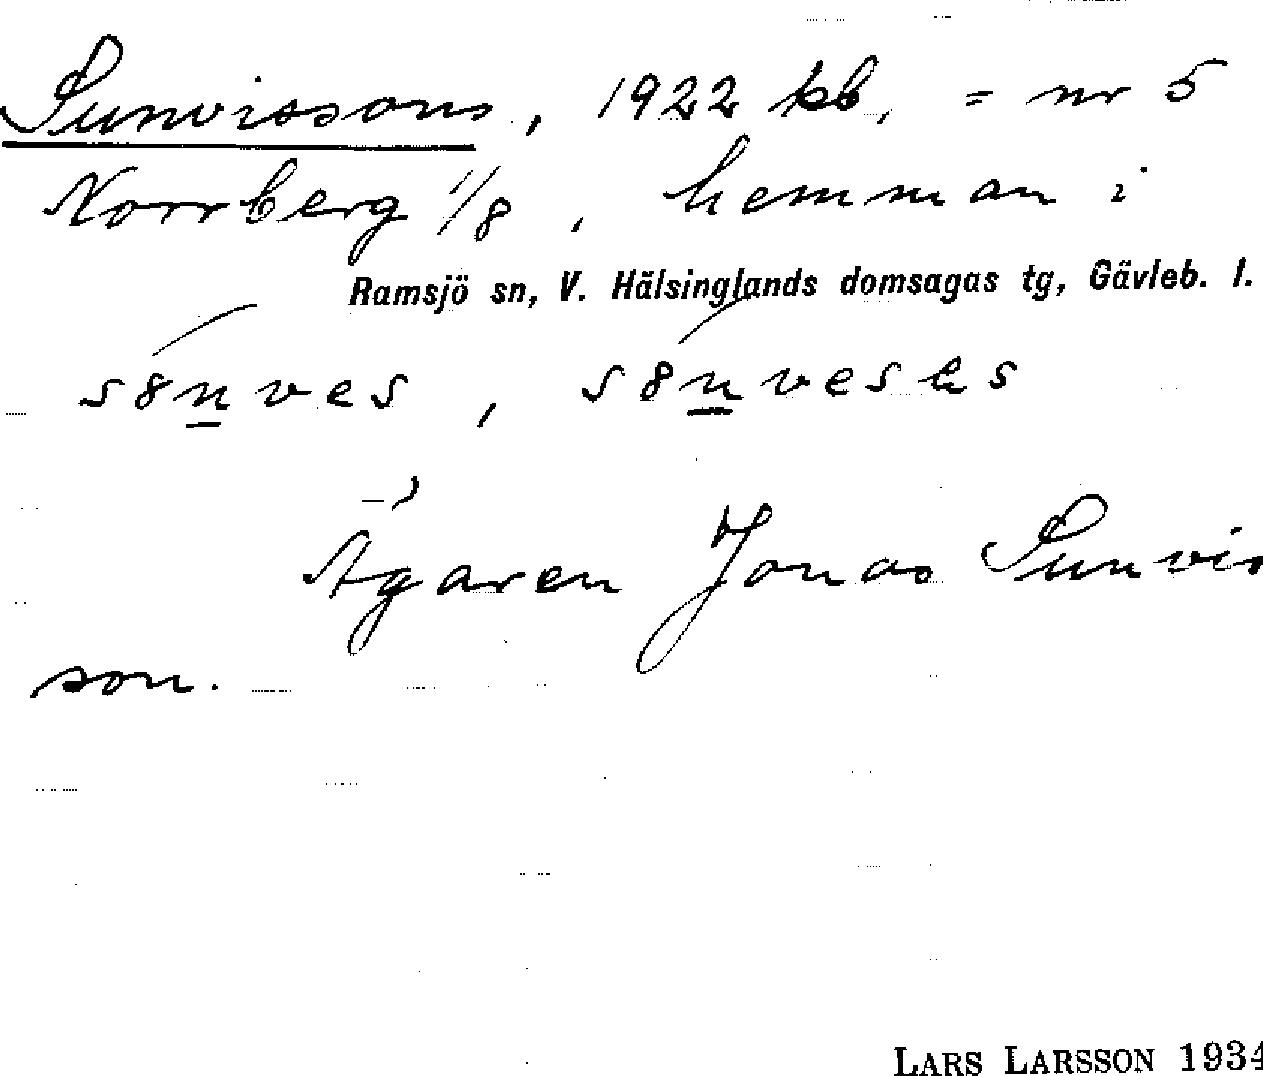 Sunvissons, 1922 kb, = nr 5
Norrberg 1/8, hemman i
Ramsjö sn, V. Hälsinglands domsagas tg, Gävleb. l.
Ägaren Jonas Sunvis
son.
LARS LARSSON 1934